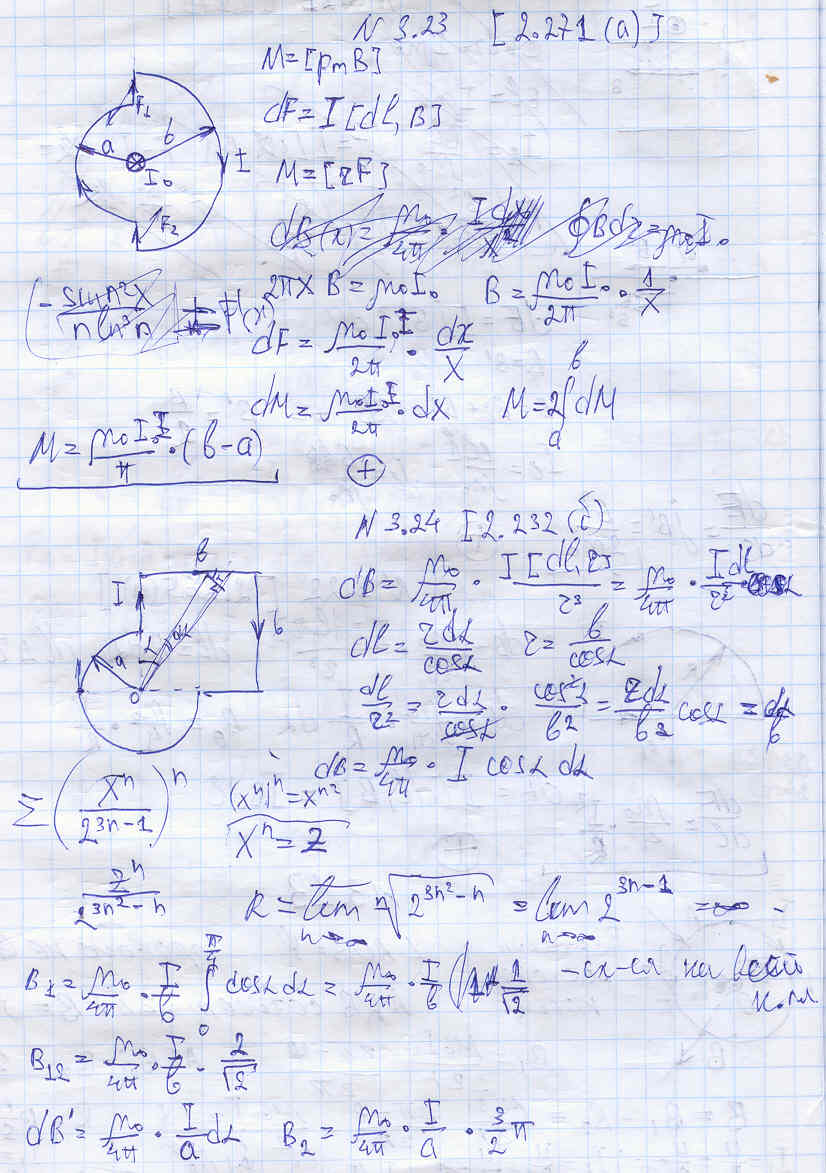 N 3.23 [2.271 (а)]
M = [pₘB]
dF = I [dl, B]
M = [rF]
a b I₀ I F₁ F₂
dB(x) = μ₀/4π · I dx/x² ∮Bdr = μ₀I₀
2πx B = μ₀I₀ B = μ₀I₀/2π · 1/x
dF = μ₀I₀I/2π · dx/x
dM = μ₀I₀I/2π · dx M = 2∫ₐᵇ dM
M = μ₀I₀I/π · (b-a)
+
N 3.24 [2.232 (б)
I b b a α dα O
dB = μ₀/4π · I [dl, r]/r³ = μ₀/4π · I dl/r² · cosα
dl = r dα/cosα r = b/cosα
dl/r² = r dα/cosα · cos²α/b² = r dα/b² cosα = dα/b
dB = μ₀/4π · I cosα dα
Σ (xⁿ/2³ⁿ⁻¹)ⁿ (xⁿ)ⁿ = xⁿ²
xⁿ = z
zⁿ/2^(3n²-n) R = lim n→∞ ⁿ√(2^(3n²-n)) = lim n→∞ 2^(3n-1) = ∞ -
B₁ = μ₀/4π · I/b ∫₀^(π/4) cosα dα = μ₀/4π · I/b 1/√2 - сх-ся на всей
к.пл
B₁₂ = μ₀/4π · I/b · 2/√2
dB' = μ₀/4π · I/a dα B₂ = μ₀/4π · I/a · 3/2 π